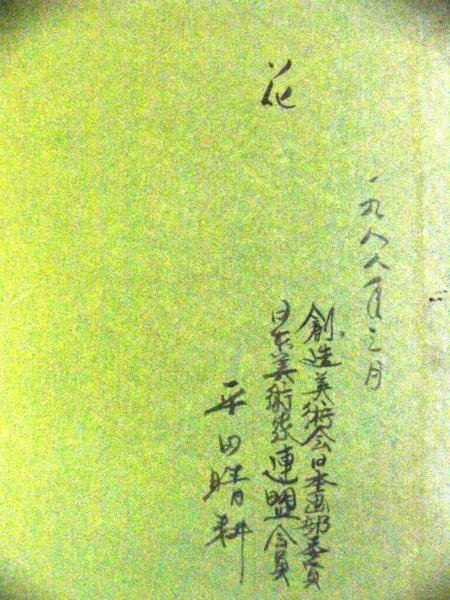 花
一九八八年三月
創造美術会日本画部委員
日本美術家連盟会員
平田晴耕